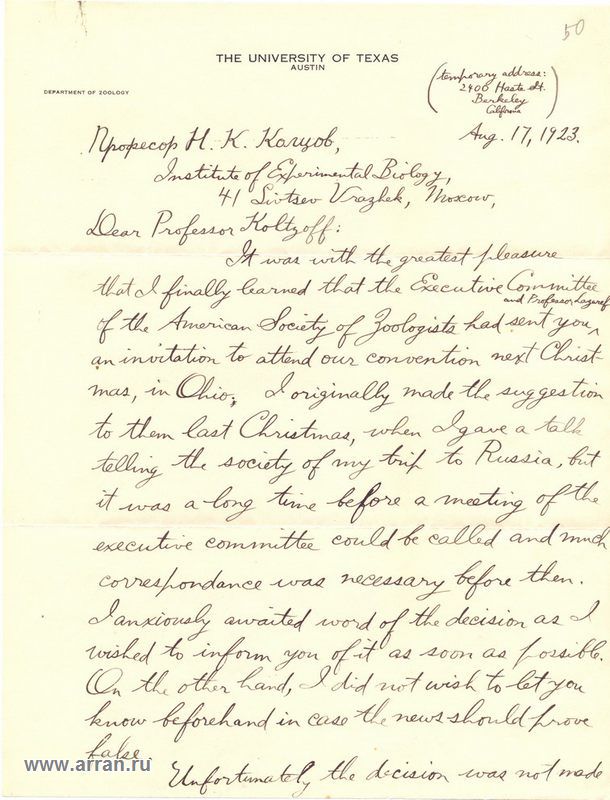 50
THE UNIVERSITY OF TEXAS
AUSTIN
DEPARTMENT OF ZOOLOGY
(temporary address:
2400 Haste St.
Berkeley
California)
Aug. 17, 1923.
Професор Н. К. Колцов,
Institute of Experimental Biology,
41 Sivtsev Vrazhek, Moscow,
Dear Professor Koltzoff:
It was with the greatest pleasure
that I finally learned that the Executive Committee
and Professor Lazaref
of the American Society of Zoologists had sent you,
an invitation to attend our convention next Christ-
mas, in Ohio. I originally made the suggestion
to them last Christmas, when I gave a talk
telling the society of my trip to Russia, but
it was a long time before a meeting of the
executive committee could be called and much
correspondance was necessary before then.
I anxiously awaited word of the decision as I
wished to inform you of it as soon as possible.
On the other hand, I did not wish to let you
know beforehand in case the news should prove
false.
Unfortunately the decision was not made
www.arran.ru